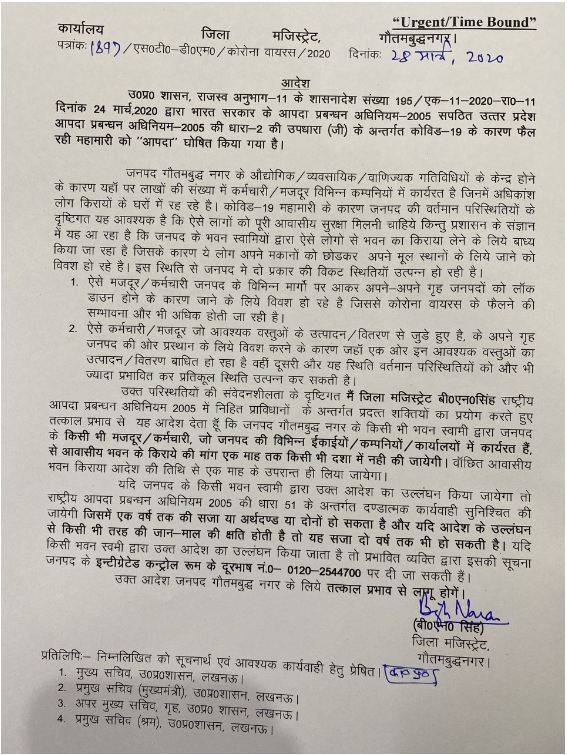 "Urgent/Time Bound"
कार्यालय जिला मजिस्ट्रेट, गौतमबुद्धनगर।
पत्रांकः 1897/एस०टी०-डी०एम०/कोरोना वायरस/2020 दिनांकः 28 मार्च, 2020
आदेश
उ०प्र० शासन, राजस्व अनुभाग-11 के शासनादेश संख्या 195/एक-11-2020-रा०-11
दिनांक 24 मार्च,2020 द्वारा भारत सरकार के आपदा प्रबन्धन अधिनियम-2005 सपठित उत्तर प्रदेश
आपदा प्रबन्धन अधिनियम-2005 की धारा-2 की उपधारा (जी) के अन्तर्गत कोविड-19 के कारण फैल
रही महामारी को "आपदा" घोषित किया गया है।
जनपद गौतमबुद्ध नगर के औद्योगिक/व्यवसायिक/वाणिज्यक गतिविधियों के केन्द्र होने
के कारण यहाँ पर लाखों की संख्या में कर्मचारी/मजदूर विभिन्न कम्पनियों में कार्यरत है जिनमें अधिकांश
लोग किरायों के घरों में रह रहे है। कोविड-19 महामारी के कारण जनपद की वर्तमान परिस्थितियों के
दृष्टिगत यह आवश्यक है कि ऐसे लागों को पूरी आवासीय सुरक्षा मिलनी चाहिये किन्तु प्रशासन के संज्ञान
में यह आ रहा है कि जनपद के भवन स्वामियों द्वारा ऐसे लोगो से भवन का किराया लेने के लिये बाध्य
किया जा रहा है जिसके कारण ये लोग अपने मकानों को छोडकर अपने मूल स्थानों के लिये जाने को
विवश हो रहे है। इस स्थिति से जनपद मे दो प्रकार की विकट स्थितियाँ उत्पन्न हो रही है।
1. ऐसे मजदूर/कर्मचारी जनपद के विभिन्न मार्गो पर आकर अपने-अपने गृह जनपदों को लॉक
डाउन होने के कारण जाने के लिये विवश हो रहे है जिससे कोरोना वायरस के फैलने की
सम्भावना और भी अधिक होती जा रही है।
2. ऐसे कर्मचारी/मजदूर जो आवश्यक वस्तुओं के उत्पादन/वितरण से जुडे हुए है, के अपने गृह
जनपद की ओर प्रस्थान के लिये विवश करने के कारण जहाँ एक ओर इन आवश्यक वस्तुओं का
उत्पादन/वितरण बाधित हो रहा है वहीं दूसरी और यह स्थिति वर्तमान परिस्थितियों को और भी
ज्यादा प्रभावित कर प्रतिकूल स्थिति उत्पन्न कर सकती है।
उक्त परिस्थितियों की संवेदनशीलता के दृष्टिगत मैं जिला मजिस्ट्रेट बी०एन०सिंह राष्ट्रीय
आपदा प्रबन्धन अधिनियम 2005 में निहित प्राविधानों के अन्तर्गत प्रदत्त शक्तियों का प्रयोग करते हुए
तत्काल प्रभाव से यह आदेश देता हूँ कि जनपद गौतमबुद्ध नगर के किसी भी भवन स्वामी द्वारा जनपद
के किसी भी मजदूर/कर्मचारी, जो जनपद की विभिन्न ईकाईयों/कम्पनियों/कार्यालयों में कार्यरत हैं,
से आवासीय भवन के किराये की मांग एक माह तक किसी भी दशा में नही की जायेगी। वाँछित आवासीय
भवन किराया आदेश की तिथि से एक माह के उपरान्त ही लिया जायेगा।
यदि जनपद के किसी भवन स्वामी द्वारा उक्त आदेश का उल्लंघन किया जायेगा तो
राष्ट्रीय आपदा प्रबन्धन अधिनियम 2005 की धारा 51 के अन्तर्गत दण्डात्मक कार्यवाही सुनिश्चित की
जायेगी जिसमें एक वर्ष तक की सजा या अर्थदण्ड या दोनों हो सकता है और यदि आदेश के उल्लघन
से किसी भी तरह की जान-माल की क्षति होती है तो यह सजा दो वर्ष तक भी हो सकती है। यदि
किसी भवन स्वमी द्वारा उक्त आदेश का उल्लंघन किया जाता है तो प्रभावित व्यक्ति द्वारा इसकी सूचना
जनपद के इन्टीग्रेटेड कन्ट्रोल रूम के दूरभाष नं.0- 0120-2544700 पर दी जा सकती हैं।
उक्त आदेश जनपद गौतमबुद्ध नगर के लिये तत्काल प्रभाव से लागू होगें।
(बी०एन० सिंह)
जिला मजिस्ट्रेट,
गौतमबुद्धनगर।
प्रतिलिपिः- निम्नलिखित को सूचनार्थ एवं आवश्यक कार्यवाही हेतु प्रेषित।
1. मुख्य सचिव, उ०प्र०शासन, लखनऊ।
2. प्रमुख सचिव (मुख्यमंत्री), उ०प्र०शासन, लखनऊ।
3. अपर मुख्य सचिव, गृह, उ०प्र० शासन, लखनऊ।
4. प्रमुख सचिव (श्रम), उ०प्र०शासन, लखनऊ।